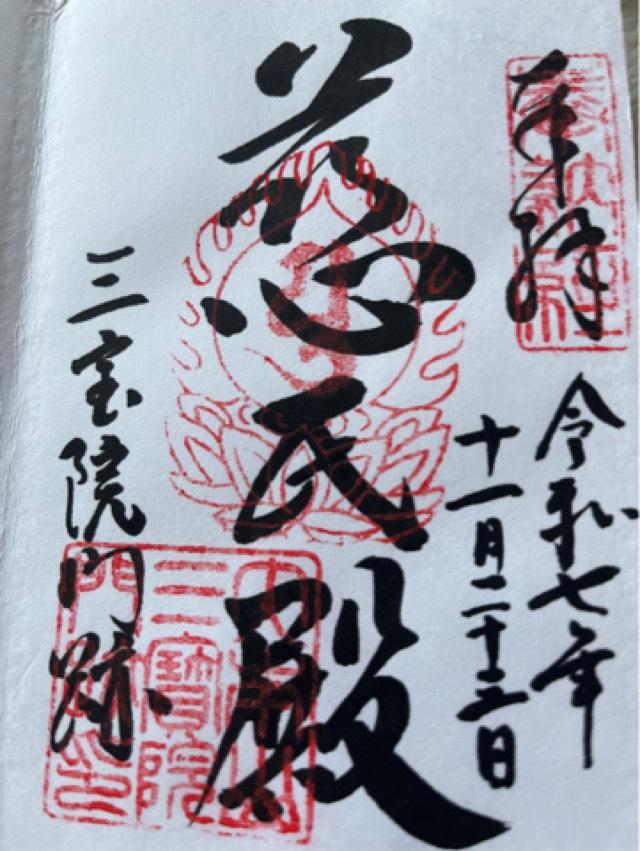 奉拝
令和七年
十一月二十三日
慈氏殿
三宝院門跡
三寶院